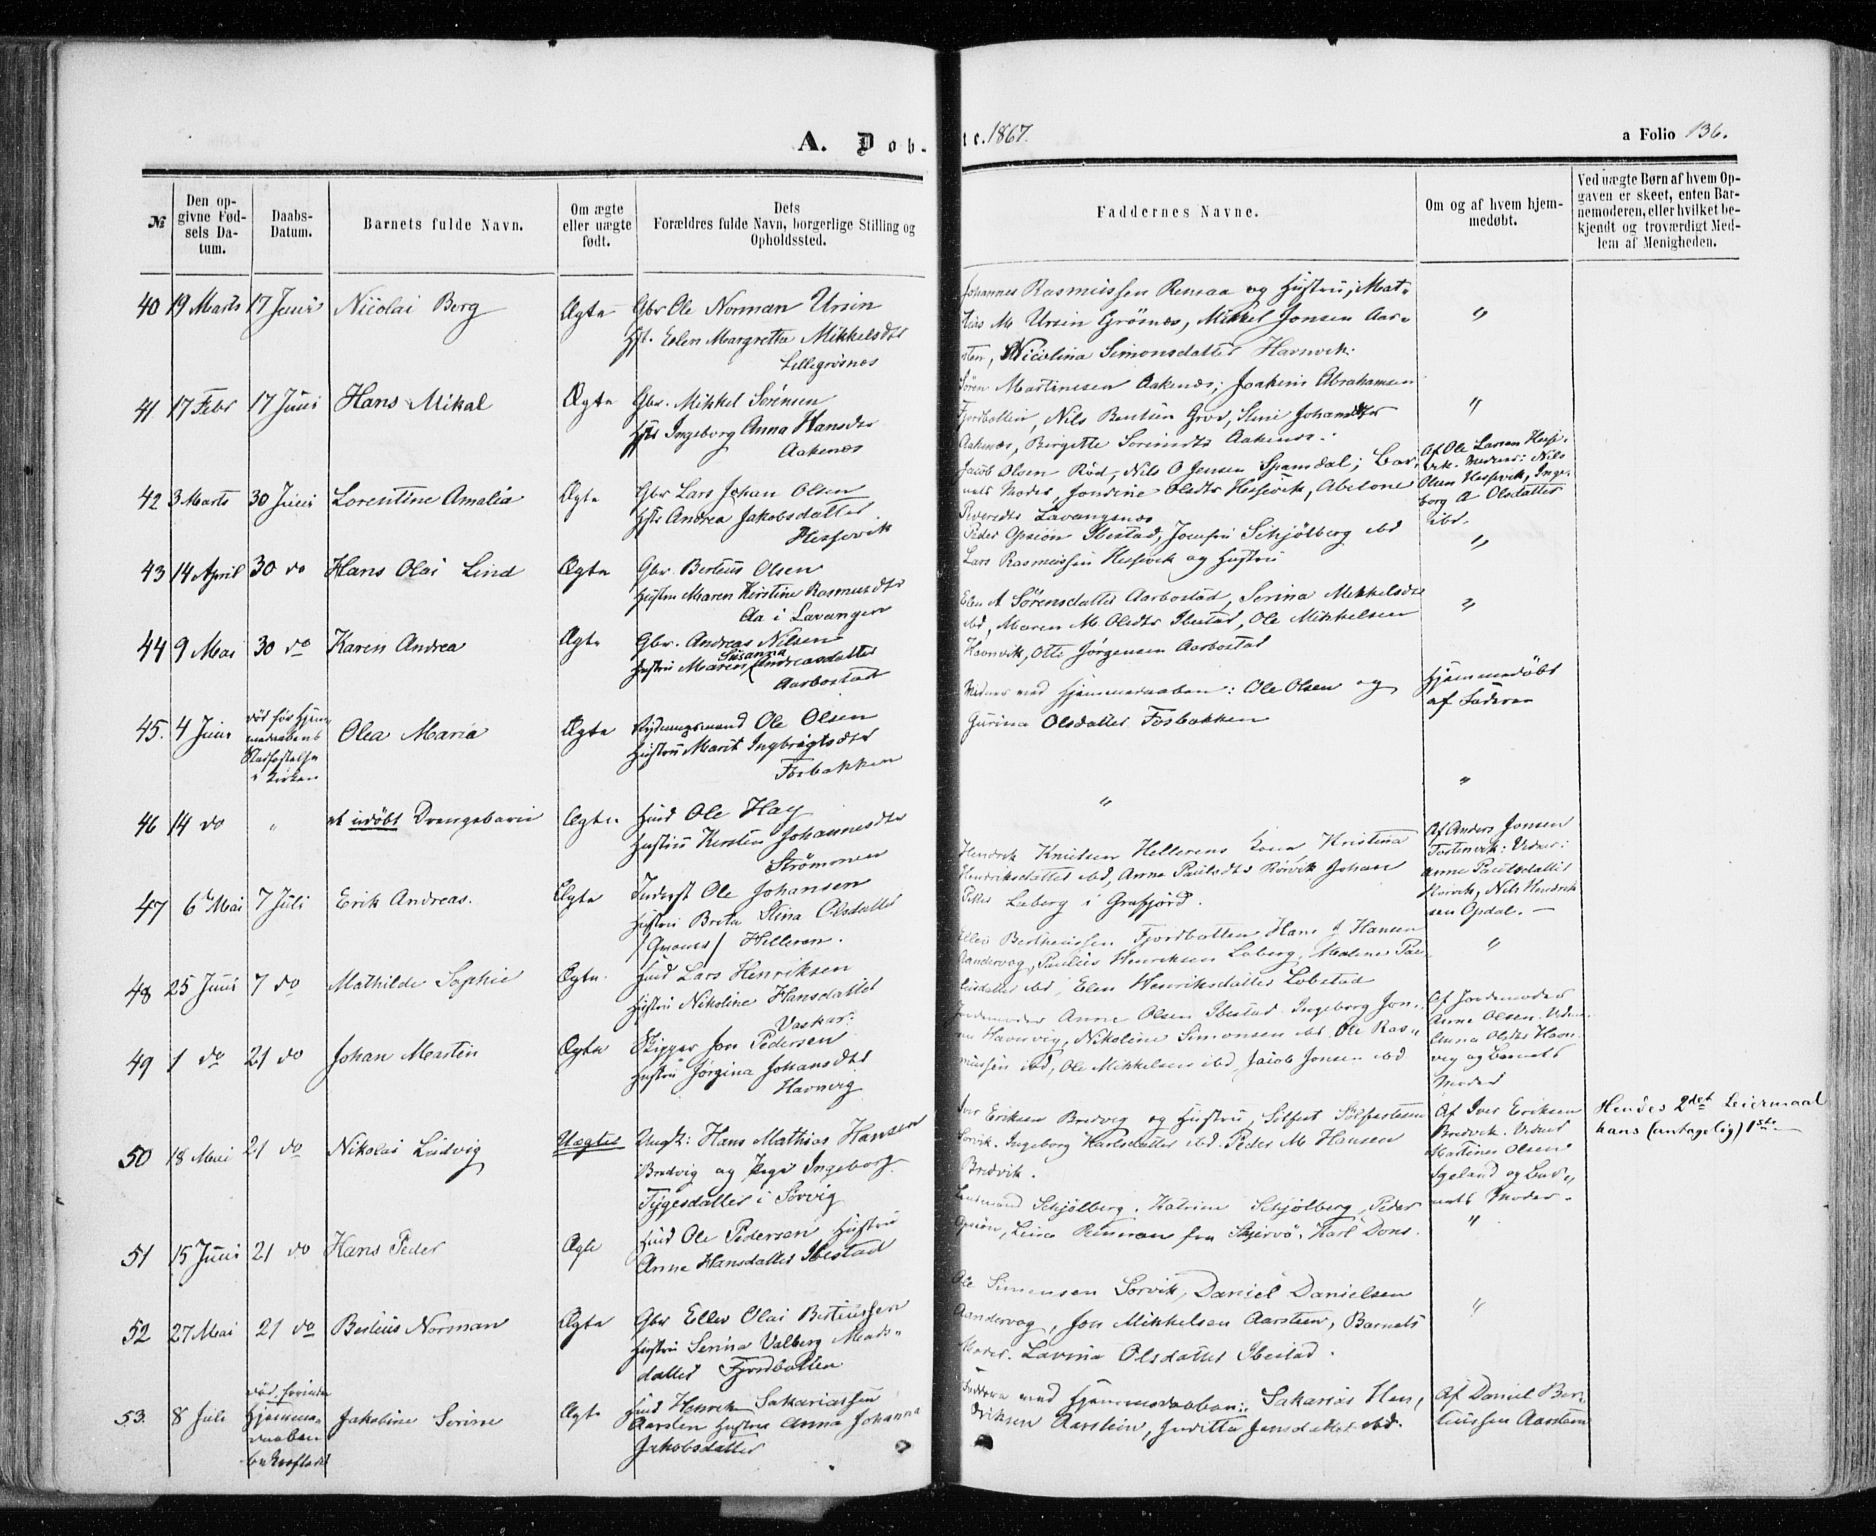 A. Dob-
te. 1867.
a Folio 136.
№
Den op-
givne Fød-
sels Da-
tum.
Daabs-
Datum.
Barnets fulde Navn.
Om ægte
eller uægte
født.
Dets
Forældres fulde Navn, borgerlige Stilling og
Opholdssted.
Faddernes Navne.
Om og af hvem hjem-
medøbt.
Ved uægte Børn af hvem Op-
gaven er skeet, enten Bar-
nemoderen, eller hvilket be-
kjendt og troværdigt Med-
lem af Menigheden.
40 19 Marts 17 Juni Nicolai Berg Ægte Gbr Ole Norman Ursin
Hst. Elen Margretta Mikkelsdtr
Lillegrøsnes
Johannes Rasmussen Rensaa og Hustru, Mat-
hias M Ursin Grøsnes, Mikkel Jonsen Aar-
sten, Nicolina Simonsdatter Havnvik.
"
41 17 Febr 17 Juni Hans Mikal Ægte Gbr. Mikkel Sørensen
Hstr Ingeborg Anna Hansdtr
Aakenæs
Søren Martinssen Aakenæs, Joakim Abrahamsen
Fjordbotten, Nils Bentsen Grov, Johansdtr
Aakenæs, Bergitte Sørensdtr Aakenæs.
"
42 3 Marts 30 Juni Lorentine Amalia Ægte Gbr Lars Johan Olsen
Hstr Andrea Jakobsdatter
Hessevik
Jacob Olsen Rød, Nils O Jensen Spansdal, Bar-
nets Moder, Jondine Oledtr Hessevik, Abelone
Peveredtr Lavangsnæs
Af Ole Larsen Hesse-
vik. Vidner: Nils
Olsen Hessevik, Inge-
borg A Olsdatter
ibd.
43 14 April 30 do Hans Olai Lind Ægte Gbr. Berteus Olsen
Hustru Maren Kirstine Rasmusdtr
Aa i Lavangen
Peder Opsiøn Ibestad, Josefin Schjølberg ibd
Lars Rasmussen Hessevik og Hustru
"
44 9 Mai 30 do Karen Andrea Ægte Gbr. Andreas Nilsen
Hustru Maren Susanna Andreasdatter
Aarbostad
Elen A Sørensdatter Aarbostad, Serina Mikkelsdtr
ibd, Maren M. Oledtr Ibestad, Ole Mikkelsen
Havnvik, Otte Jørgensen Aarbostad
"
45. 4 Juni død før Hjem-
medaabens
Stadfæstelse
i Kirken Olea Maria Ægte Rydningsmand Ole Olsen
Hustru Marit Ingbrigtsdtr
Fosbakken
Vidner ved Hjemmedaaben: Ole Olsen og
Gurina Olsdatter Fosbakken
Hjemmedøbt
af Faderen
46 14 do " et udøbt Drengebarn Ægte Huusd Ole Hay
Hustru Kersten Johannesdtr
Strømmen
"
"
47 6 Mai 7 Juli Erik Andreas. Ægte Inderst Ole Johansen
Hustru Brita Stina Olsdatter
Helleren.
Hendrik Knutsen Hellerens Kona Kristina
Hendriksdatter ibd, Anne Paulsdtr Rørvik Johan
Peter Laberg i Gratfjord.
Af Anders Jonsen
Tostenvik: Vidner:
Anne Paulsdatter
Rørvik, Nils Hendrik-
sen Opdal. —
48 25 Juni 7 do Mathilde Sophie Ægte. Huusd Lars Henriksen
Hustru Nikoline Hansdatter
Vaskar.
Ellev Bertheussen Fjordbotten Hans A Hansen
Aandervag, Paulus Henriksen Laberg, Malene Pau-
lusdatter ibd, Elen Henriksdatter Løbstad
"
49 1 do 21 do Johan Martin Ægte Skipper Jon Pedersen
Hustru Jørgina Johansdtr
Havnvig
Jordemoder Anne Olsen Ibestad. Ingeborg Jon-
sen Havnvig, Nikoline Simonsen ibd. Ole Ras-
mussen ibd, Ole Mikkelsen ibd, Jacob Jonsen ibd
Af Jordemoder
Anne Olsen. Vidner
Anna Oldtr Havn-
vig og Barnets
Moder
50 18 Mai 21 do Nikolai Ludvig Uægte Ungk: Hans Mathias Hansen
Bredvig og Pige Ingeborg
Tygesdatter i Sørvig
Iver Eriksen Bredvig og Hustru, Solfest Solfestesen
Sørvik. Ingeborg Karlsdatter ibd. Peder M Hansen
Bredvik.
Af Iver Eriksen
Bredvik. Vidner
Martines Olsen
Sgeland og Bar-
nets Moder.
Hendes 2det Leiermaal
hans (antagelig) 1ste
51 15 Juni 21 do Hans Peder Ægte Huusd Ole Pedersen Hustru
Anne Hansdatter Ibestad
Lensmand Schjølberg. Katrine Schjølberg, Peder
Opsiøn, Lina fra Skjervø. Karl Dons.
"
52 27 Mai 21 do Berteus Norman Ægte Gbr Ellev Olai Berteussen
Hustru Serina Valberg Mads-
datter Fjordbotten
Ole Simonsen Sørvik, Daniel Danielsen
Aandervag, Jon Mikkelsen Aarsteen, Barnets
Moder. Lavina Olsdatter Ibestad.
"
53. 8 Juli død forinden
Hjemme-
daaben
bekræftedes Jakobine Serine Ægte Huusd Henrik Sakariassen
Aarsten Hustru Anna Johanna
Jakobsdatter
Faddere ved Hjemmedaaben: Sakarias Hen-
driksen Aarsteen, Juditta Jensdatter ibd.
Af Daniel Ber-
teussen Aarsteen